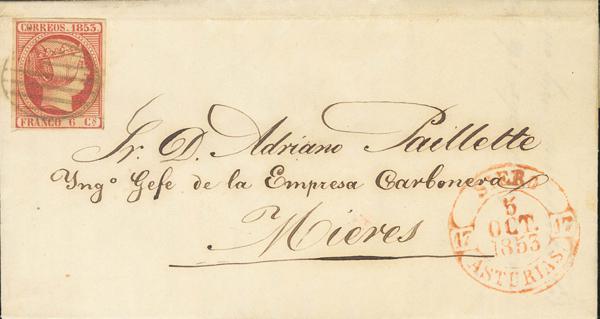 CORREOS. 1853
FRANCO 6 Cs
Sr. D. Adriano Paillette
Yngº Gefe de la Empresa Carbonera
Mieres
SIERO
5
OCT.
1853
17 17
ASTURIAS